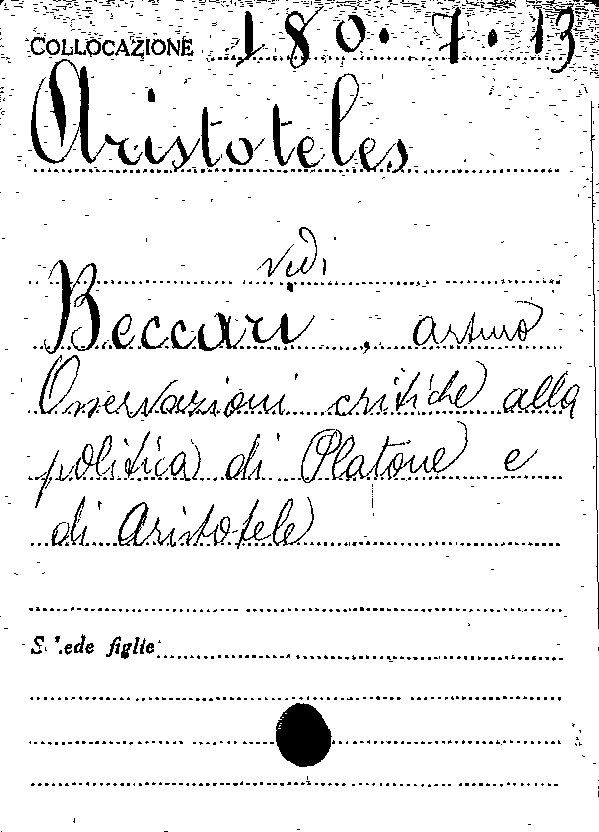 COLLOCAZIONE 180.7.13
Aristoteles
vedi
Beccari, Arturo
Osservazioni critiche alla
politica di Platone e
di Aristotele
Schede figlie